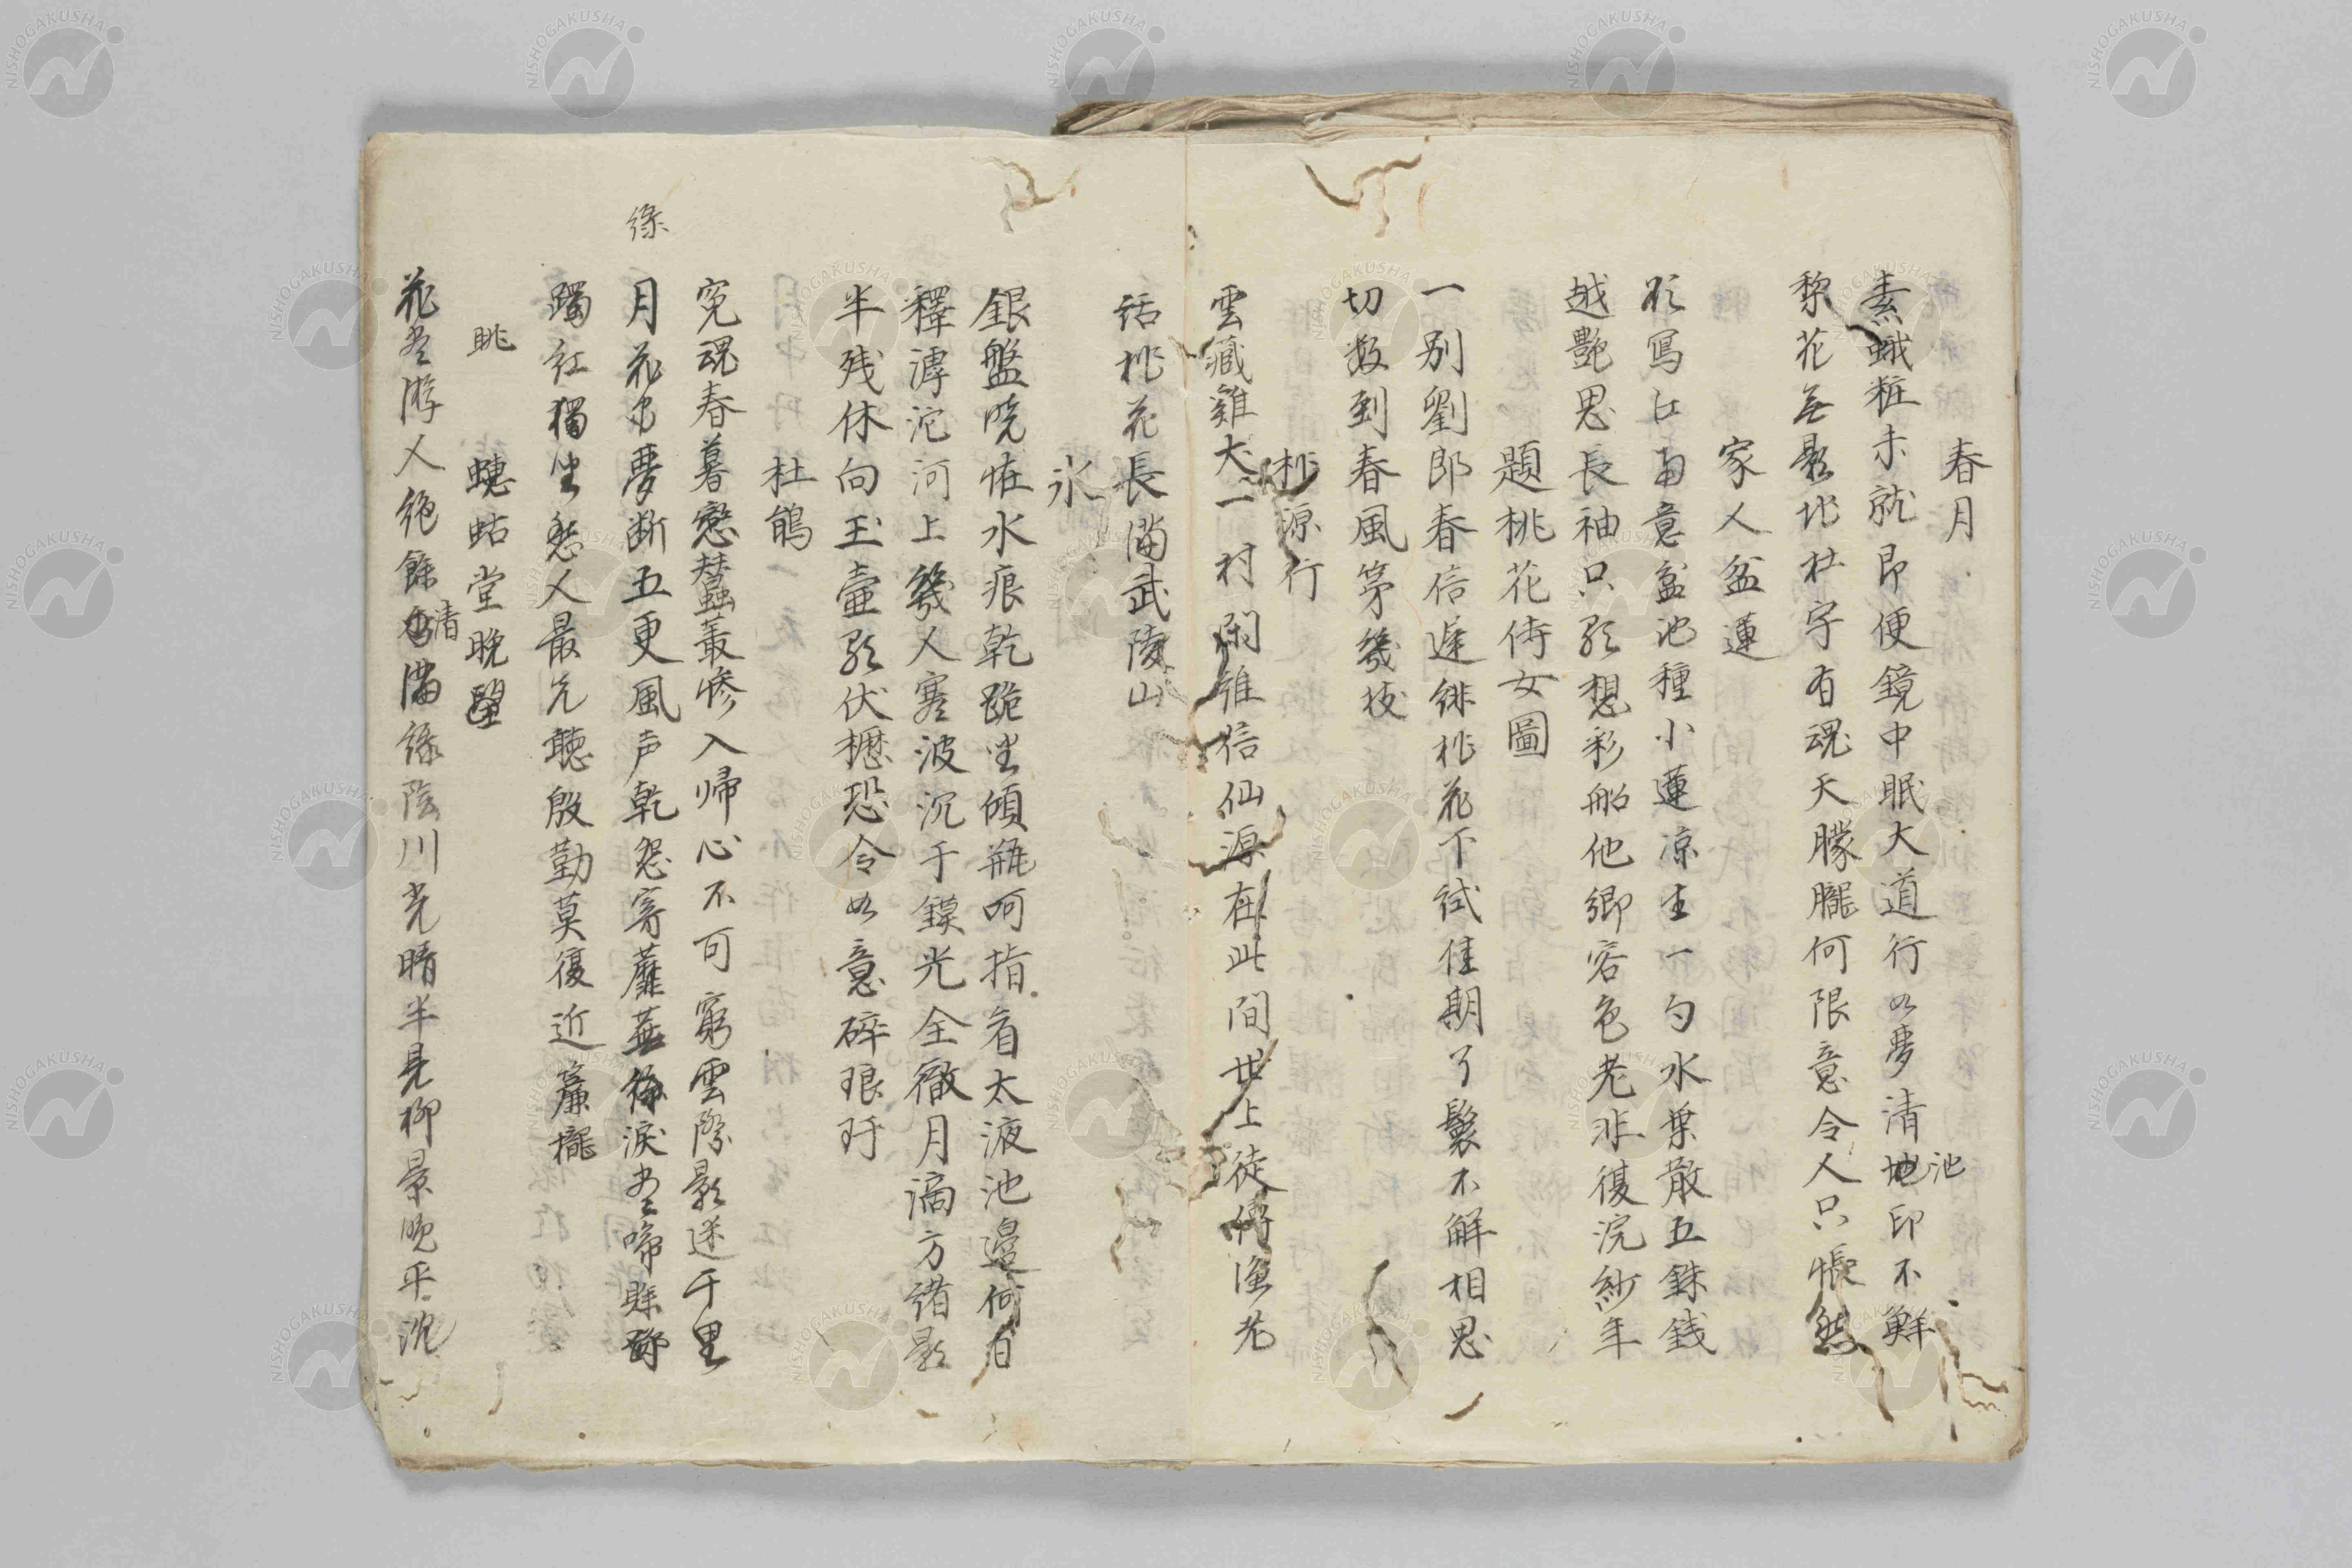 春月
素蛾粧未就即便鏡中眠大道行如夢清地印不鮮
池
黎花無影北杜宇有魂天朦朧何限意令人只悵然
家人盆蓮
欲写江南意盆池種小蓮凉生一勺水葉散五銖銭
越艶思長袖只歌想彩船他郷容色老非復浣紗年
題桃花倚女圖
一別劉郎春信遅緋桃花下試佳期了鬟不解相思
切数到春風第幾枝
桃源行
雲藏雞犬一村閑誰信仙源在此間世上徒傳漁老
話桃花長満武陵山
氷
銀盤暁怪水痕乾跪坐傾瓶呵指看太液池邉何日
釋滹沱河上幾人寒波沉于鏌光全徹月滴方諸影
半残休向玉壷歌伏櫪恐令如意碎琅玕
杜鵑
寃魂春暮戀蠶叢惨入帰心不可窮雲際影迷千里
月花安夢断五更風声乾怨寄蘼蕪緑涙尽啼躑
緑
躅紅獨坐愁人最先聴殷勤莫復近簾櫳
蟪蛄堂晩望
眺
花尽游人絶餘香満緑陰川光晴半見柳景晩平沈
清